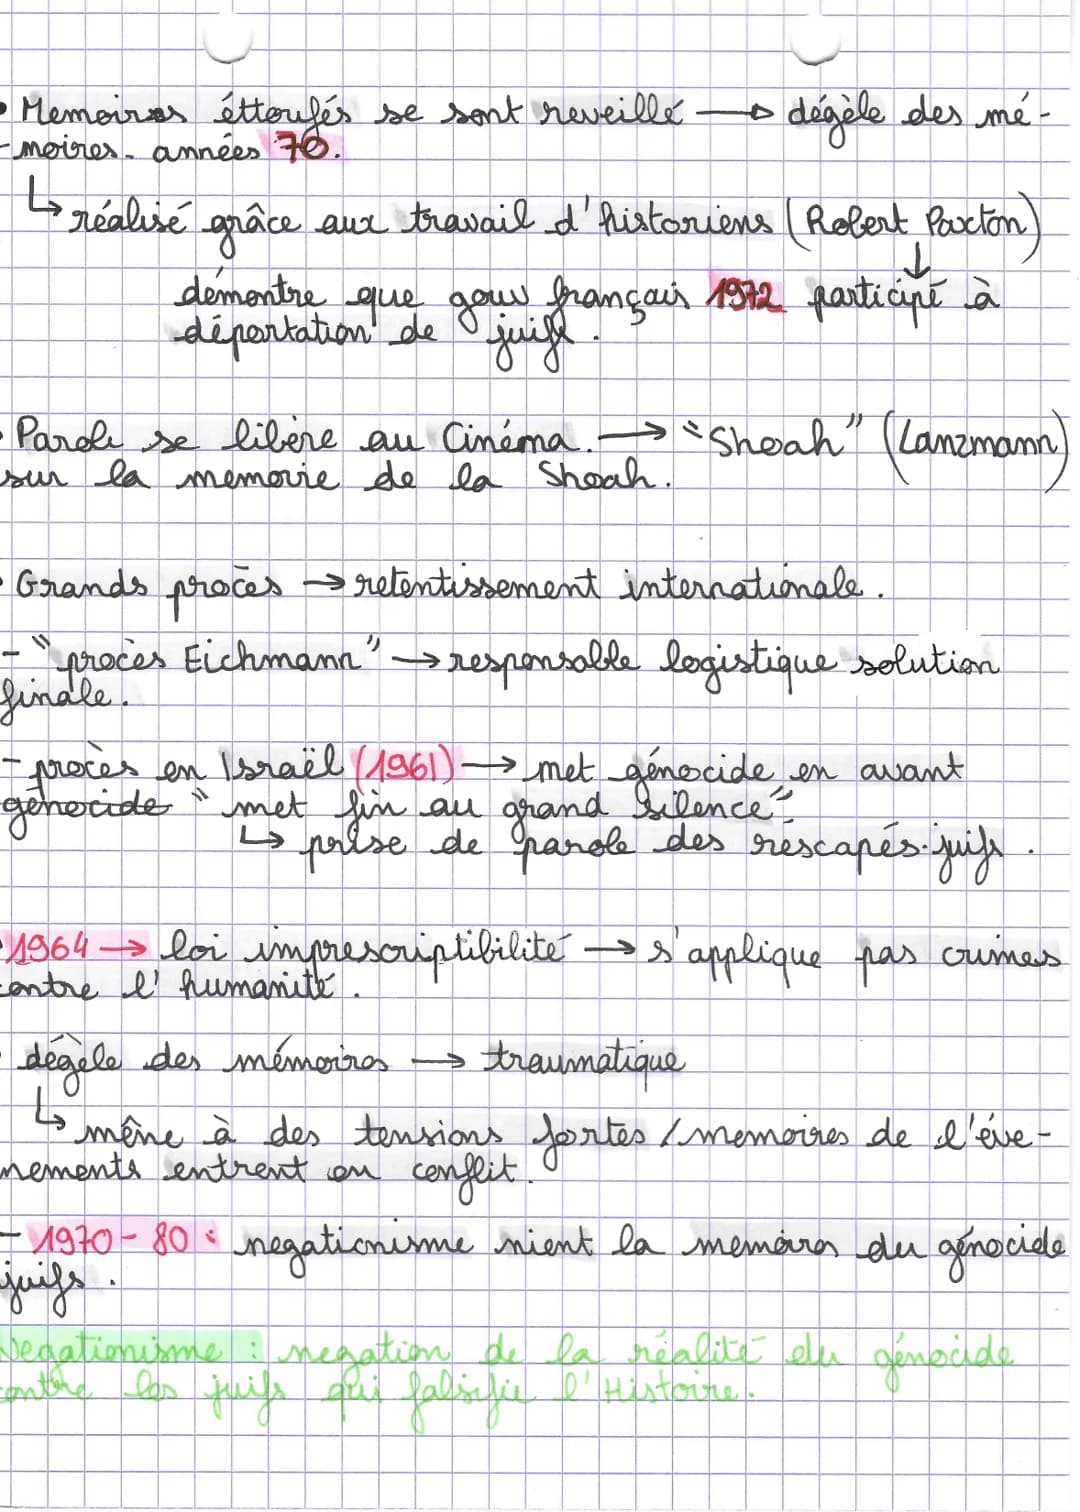 • Memoires éttoufés se sont reveillé → dégèle des mé-
-moires. années 70.
↳ réalisé grâce aux travail d'historiens (Robert Paxton)
↓
démontre que gouv français 1972 participé à
déportation de juifs.
• Parole se libère au Cinéma. → "Shoah" (Lanzmann)
sur la memorie de la Shoah.
• Grands procès → retentissement internationale.
- "procès Eichmann" → responsable logistique solution
finale.
- procès en Israël (1961) → met génocide en avant
génocide "met fin au grand silence"
↳ prise de parole des rescapés juifs.
• 1964 → loi imprescriptibilité → s'applique pas crimes
contre l'humanité.
• dégèle des mémoires → traumatique
↳ mène à des tensions fortes / memoires de l'éve-
nements entrent en conflit.
- 1970-80 : negationisme nient la memoires du génocide
juifs.
Negationisme : negation de la réalité du génocide
contre les juifs qui falsifie l'Histoire.